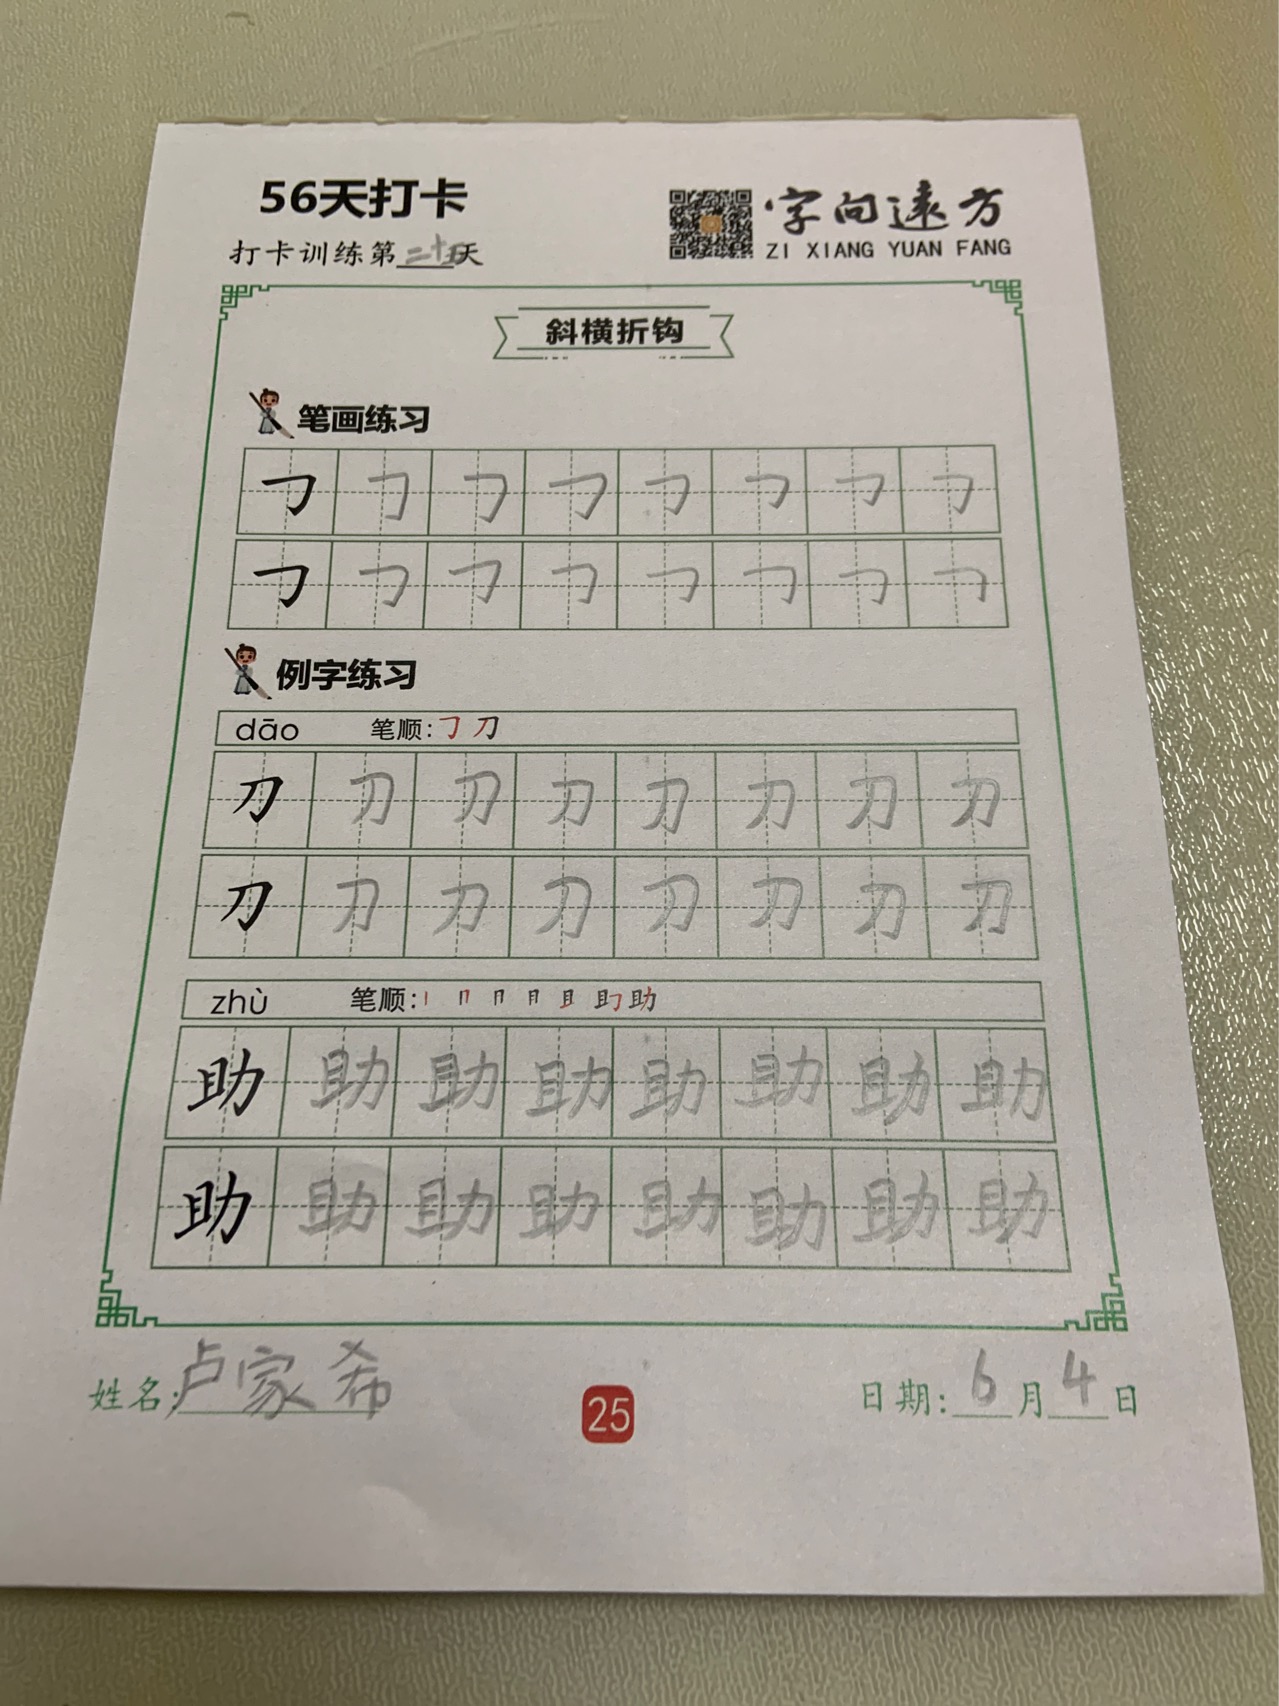 56天打卡
字向遠方
打卡训练第二十五天
ZI XIANG YUAN FANG
斜横折钩
笔画练习
㇆ ㇆ ㇆ ㇆ ㇆ ㇆ ㇆ ㇆
㇆ ㇆ ㇆ ㇆ ㇆ ㇆ ㇆ ㇆
例字练习
dāo 笔顺:㇆ 刀
刀 刀 刀 刀 刀 刀 刀 刀
刀 刀 刀 刀 刀 刀 刀 刀
zhù 笔顺:
助 助 助 助 助 助 助 助
助 助 助 助 助 助 助 助
姓名:卢家希
25
日期:6月4日